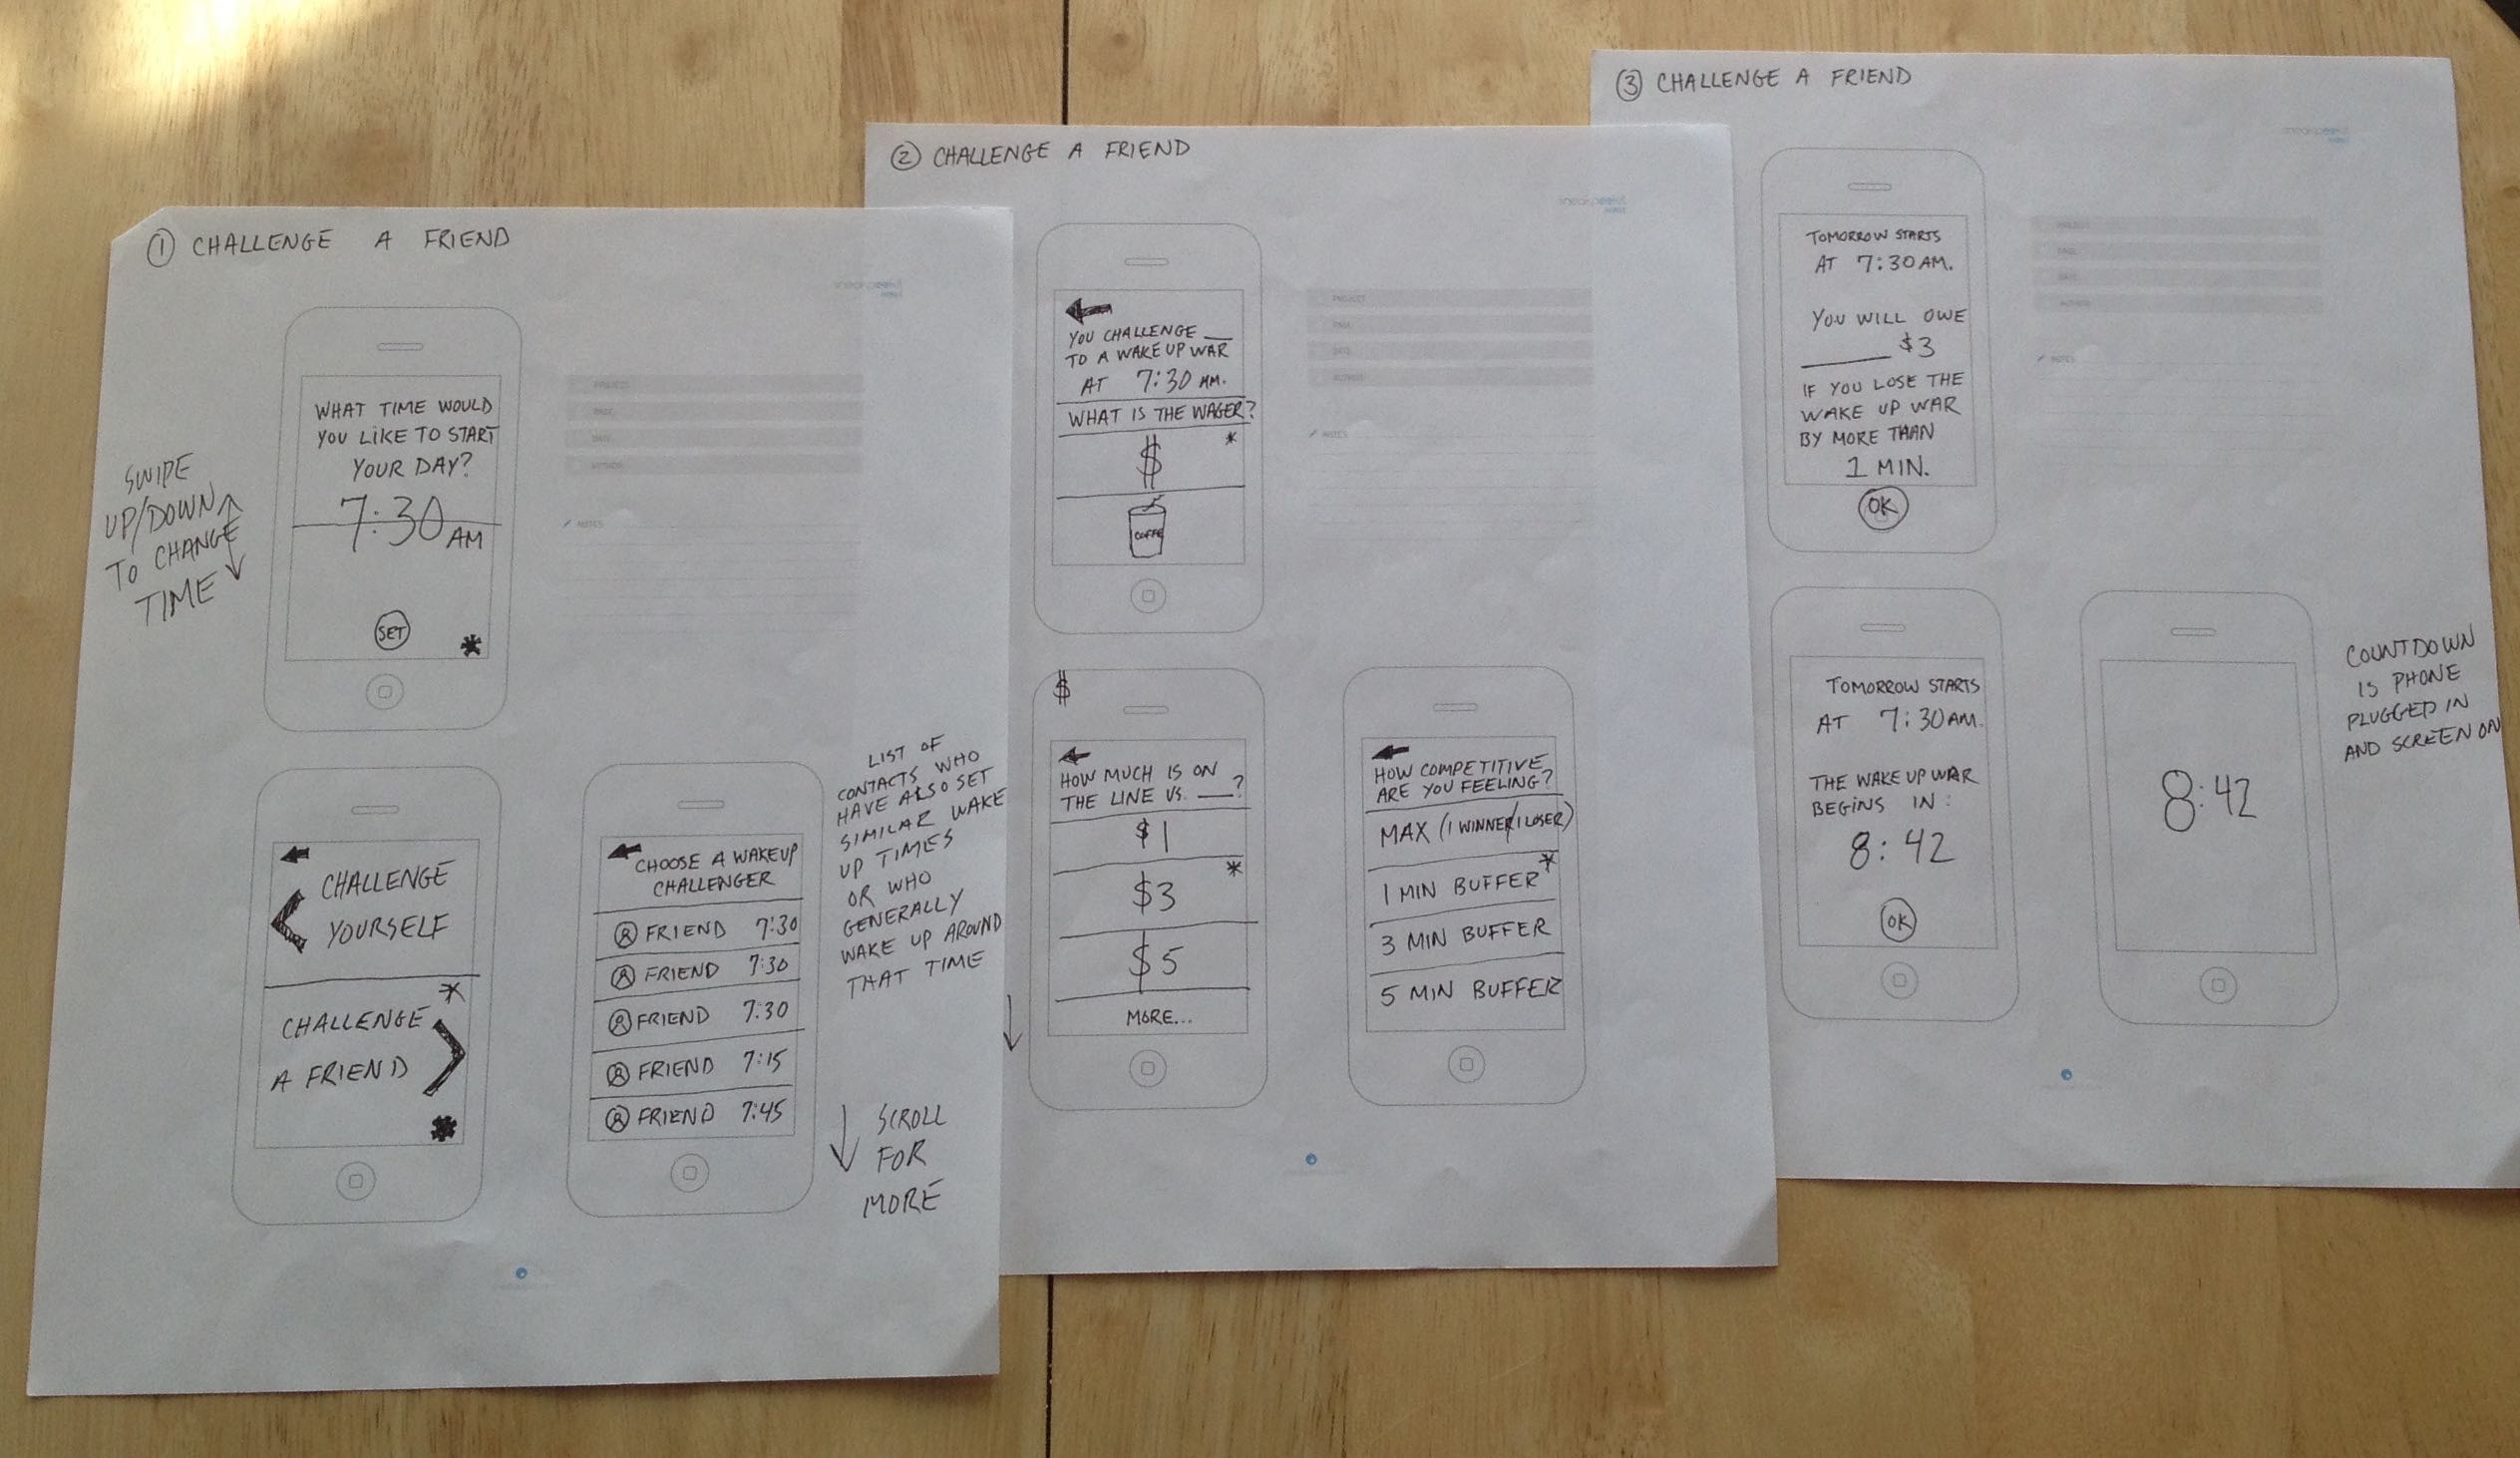 ① CHALLENGE A FRIEND
WHAT TIME WOULD
YOU LIKE TO START
YOUR DAY?
7:30 AM
SET
*
SWIPE
UP/DOWN
TO CHANGE
TIME
CHALLENGE
YOURSELF
*
CHALLENGE
A FRIEND
*
CHOOSE A WAKEUP
CHALLENGER
FRIEND 7:30
FRIEND 7:30
FRIEND 7:30
FRIEND 7:15
FRIEND 7:45
LIST OF
CONTACTS WHO
HAVE ALSO SET
SIMILAR WAKE
UP TIMES
OR WHO
GENERALLY
WAKE UP AROUND
THAT TIME
SCROLL
FOR
MORE
NOTES
② CHALLENGE A FRIEND
YOU CHALLENGE __
TO A WAKE UP WAR
AT 7:30 AM.
WHAT IS THE WAGER?
$ *
COFFE
NOTES
$
HOW MUCH IS ON
THE LINE VS. __?
$1
$3 *
$5
MORE...
HOW COMPETITIVE
ARE YOU FEELING?
MAX (1 WINNER/1 LOSER)
1 MIN BUFFER *
3 MIN BUFFER
5 MIN BUFFER
③ CHALLENGE A FRIEND
TOMORROW STARTS
AT 7:30 AM.
YOU WILL OWE
____ $3
IF YOU LOSE THE
WAKE UP WAR
BY MORE THAN
1 MIN.
OK
NOTES
TOMORROW STARTS
AT 7:30 AM.
THE WAKE UP WAR
BEGINS IN:
8:42
OK
8:42
COUNTDOWN
IS PHONE
PLUGGED IN
AND SCREEN ON